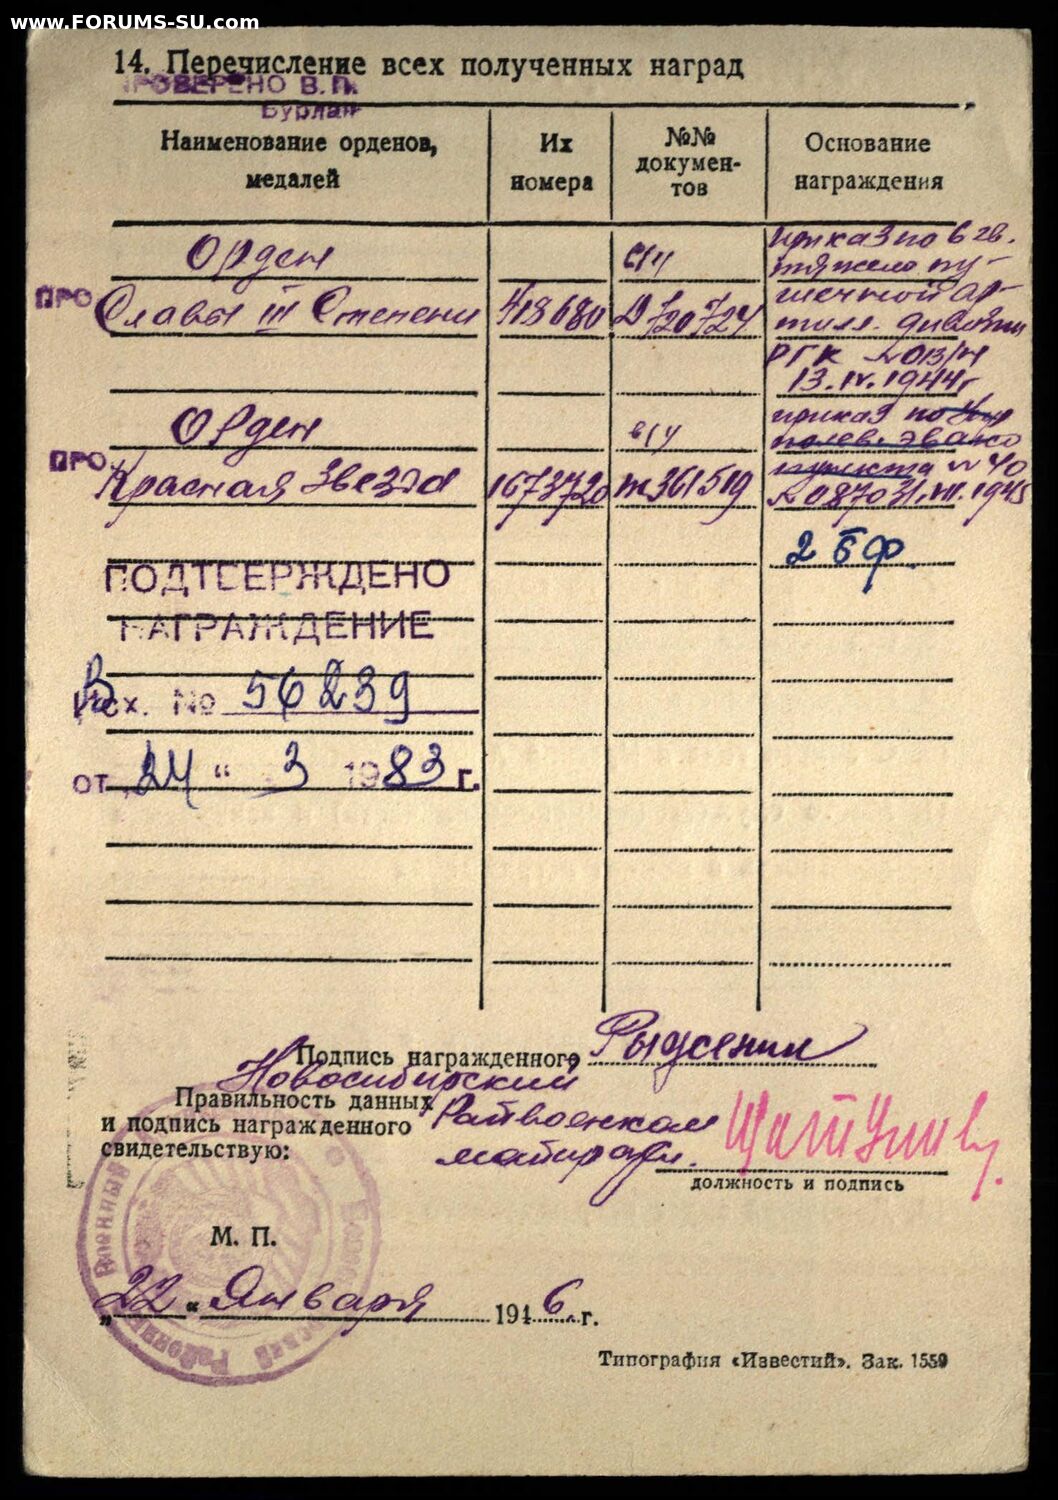 www.FORUMS-SU.com
14. Перечисление всех полученных наград
ПРОВЕРЕНО В. П.
Бурлак
Наименование орденов, медалей
Их номера
№№ докумен-тов
Основание награждения
Орден
в/у
приказ по 6 гв.
тяжело пу-
ПРО
Славы III Степени 418680 Д 720724
шечной ар-
тилл. дивизии
РГК № 013/н
13.IV.1944г
Орден
в/у
приказ по
полев. эвако
ПРО
Красная Звезда 1673720 м361519
пункта № 40
№ 0870 31.VII.1945
2 б ф
ПОДТВЕРЖДЕНО
НАГРАЖДЕНИЕ
Исх. № 56239
от „24“ 3 1983 г.
Подпись награжденного
Новосибирский
Правильность данных
и подпись награжденного
свидетельствую:
Райвоенком
майор адм.
должность и подпись
М. П.
„22“ Января 1946 г.
Типография «Известий». Зак. 1559